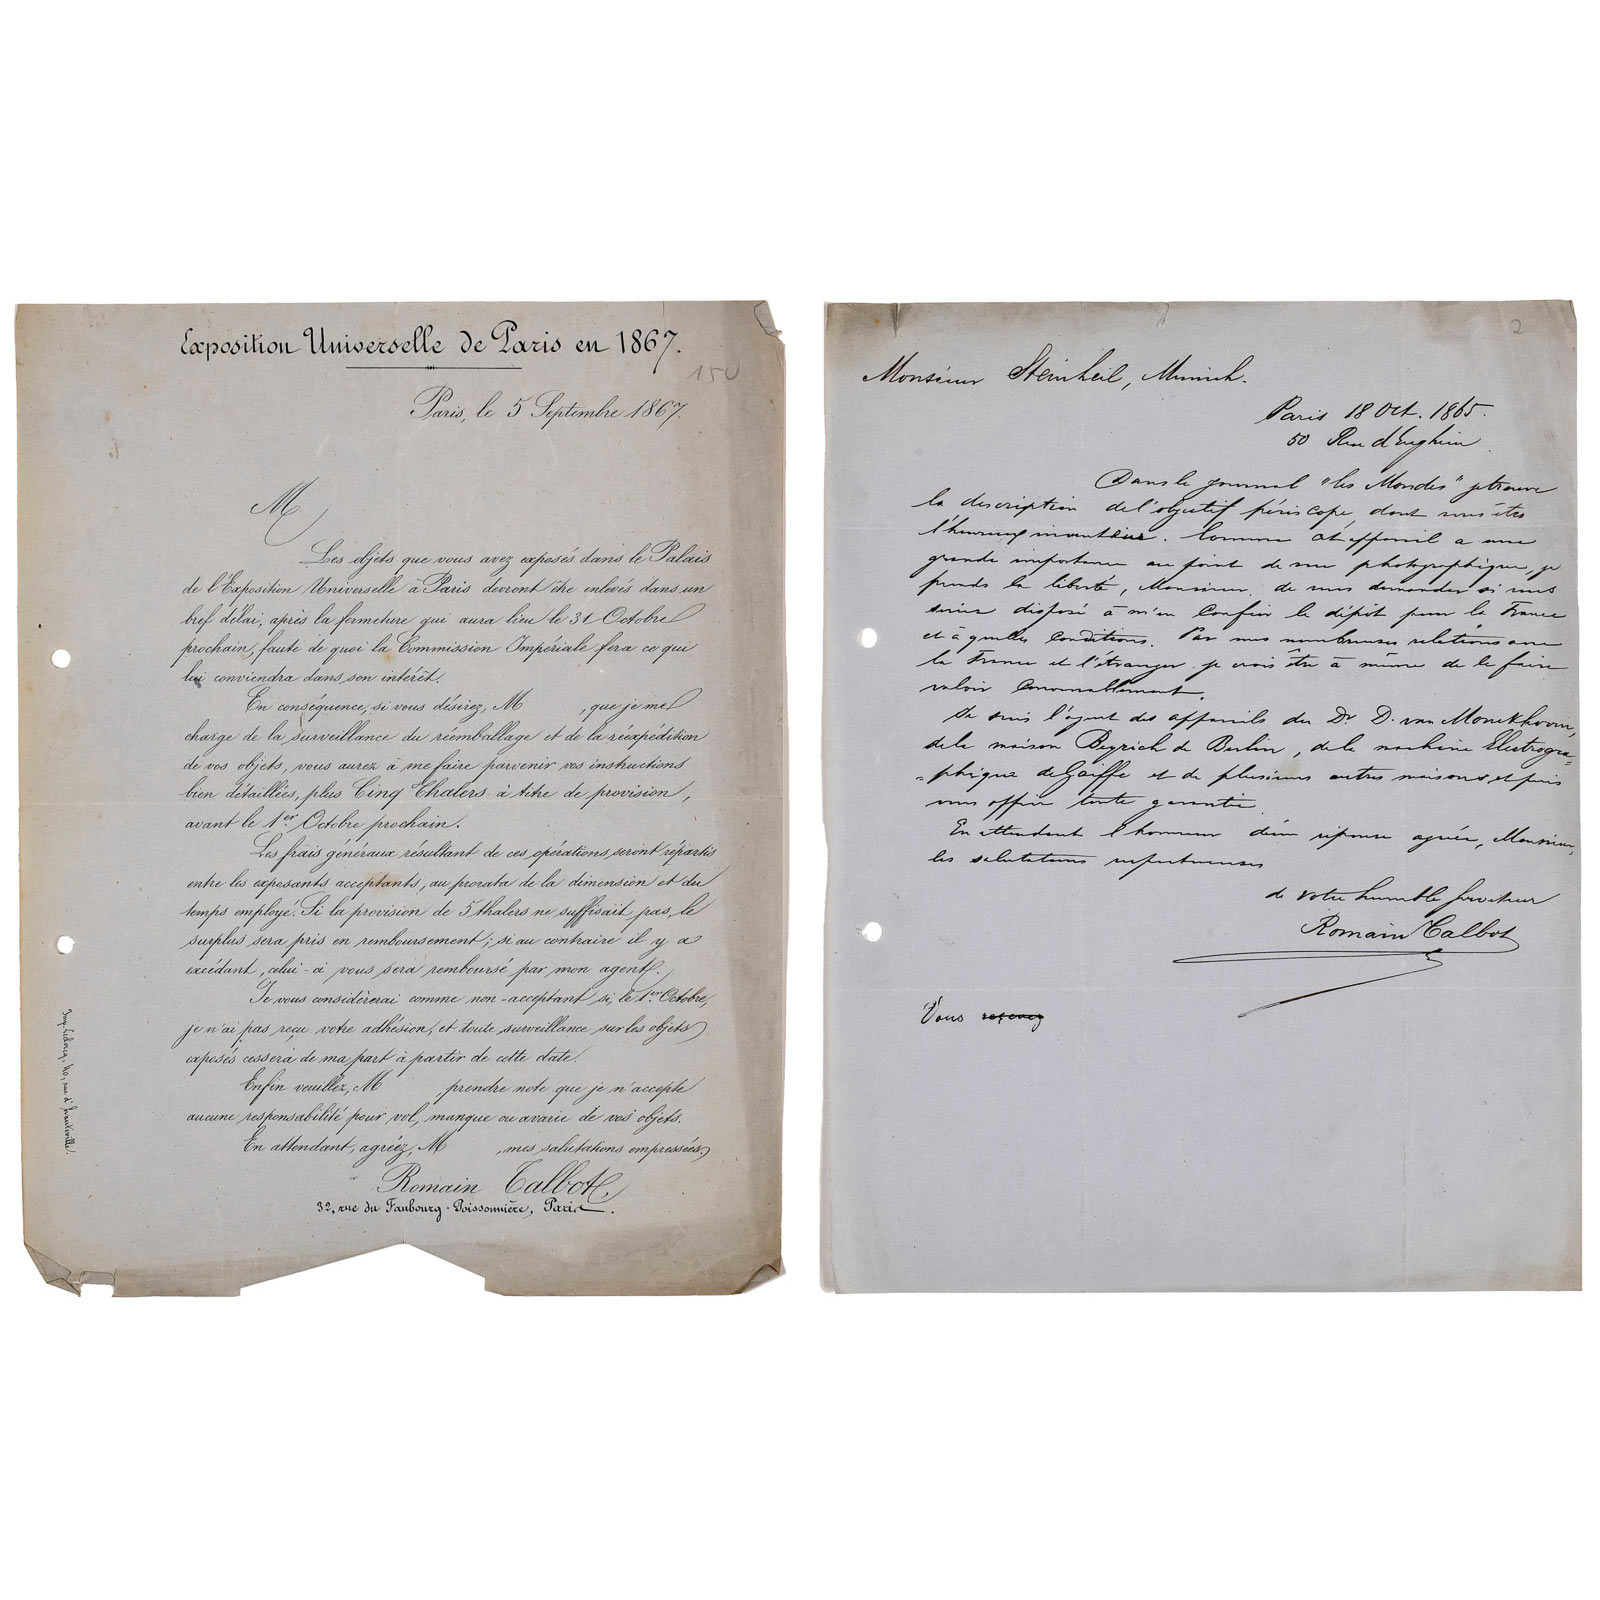 Exposition Universelle de Paris en 1867.
150
Paris, le 5 Septembre 1867.
M
Les objets que vous avez exposés dans le Palais
de l'Exposition Universelle à Paris devront être enlevés dans un
bref délai, après la fermeture qui aura lieu le 31 Octobre
prochain, faute de quoi la Commission Impériale fera ce qui
lui conviendra dans son intérêt.
En conséquence, si vous désirez, M , que je me
charge de la surveillance du réemballage et de la réexpédition
de vos objets, vous aurez à me faire parvenir vos instructions
bien détaillées, plus Cinq Thalers à titre de provision,
avant le 1er Octobre prochain.
Les frais généraux résultant de ces opérations seront répartis
entre les exposants acceptants, au prorata de la dimension et du
temps employé. Si la provision de 5 thalers ne suffisait pas, le
surplus sera pris en remboursement; si au contraire il y a
excédant, celui-ci vous sera remboursé par mon agent.
Je vous considèrerai comme non-acceptant si, le 1er Octobre,
je n'ai pas reçu votre adhésion, et toute surveillance sur les objets
exposés cessera de ma part à partir de cette date.
Enfin veuillez, M prendre note que je n'accepte
aucune responsabilité pour vol, manque ou avarie de vos objets.
En attendant, agréez, M , mes salutations empressées,
Romain Talbot,
32, rue du Faubourg-Poissonnière, Paris.
2
Monsieur Steinheil, Munich.
Paris 18 Oct. 1865.
50 Rue d'Enghien
Dans le journal "les Mondes" je trouve
la description de l'objectif périscope, dont vous êtes
l'heureux inventeur. Comme cet appareil a une
grande importance au point de vue photographique, je
prends la liberté, Monsieur, de vous demander si vous
seriez disposé à m'en confier le dépôt pour la France
et à quelles conditions. Par mes nombreuses relations avec
la France et l'étranger je crois être à même de le faire
valoir convenablement.
Je suis l'agent des appareils du Dr. D. van Monckhoven,
de la maison Beyrich de Berlin, de la machine Electrogra=
=phique de Gaiffe et de plusieurs autres maisons, et puis
vous offrir toute garantie.
En attendant l'honneur d'une réponse agréez, Monsieur,
les salutations respectueuses
de votre humble serviteur
Romain Talbot
Vous